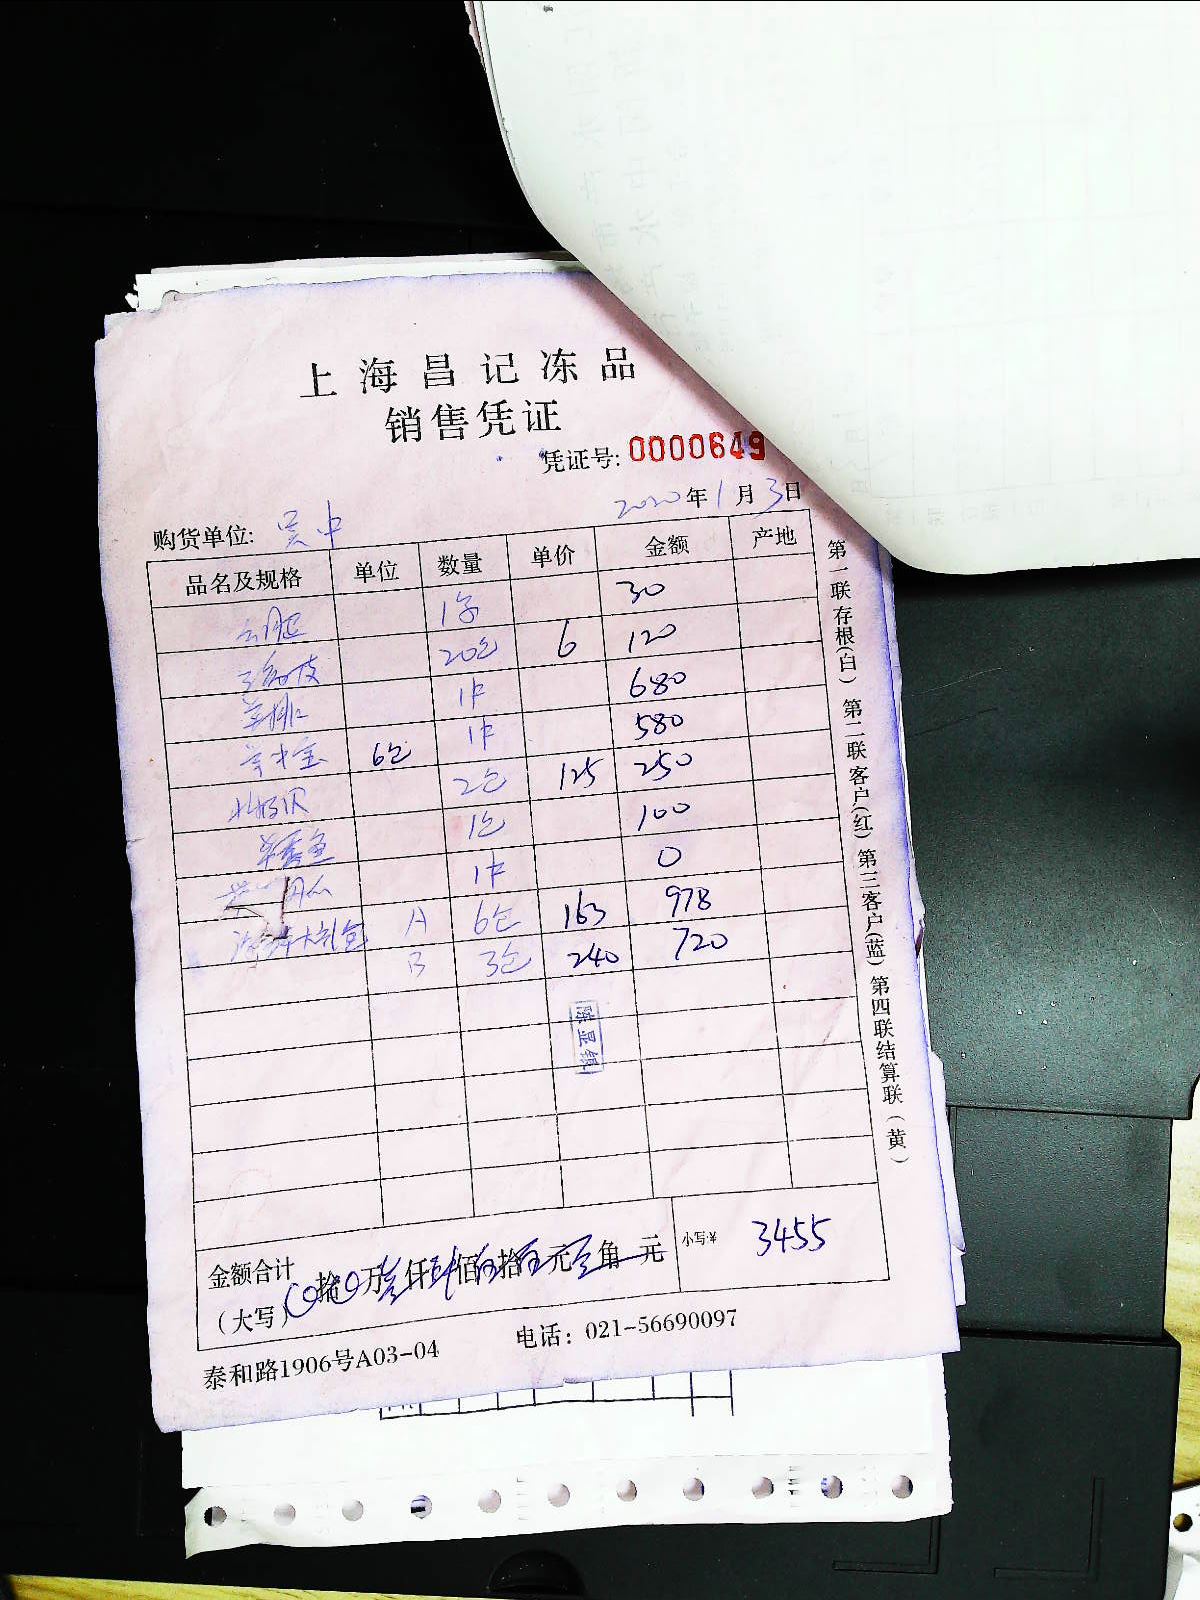 上海昌记冻品
销售凭证
凭证号: 0000649
2020年1月3日
购货单位: 吴中
品名及规格 单位 数量 单价 金额 产地
30
20包 6 120
羊排 1件 680
6包 1件 580
北极贝 2包 125 250
1包 100
1件 0
大礼包 A 6包 163 978
B 3包 240 720
金额合计
(大写) 拾 万 叁仟肆佰伍拾伍元 角 元 小写:¥ 3455
泰和路1906号A03-04 电话: 021-56690097
第一联存根(白) 第二联客户(红) 第三客户(蓝) 第四联结算联(黄)